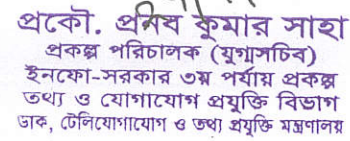 প্রকৌ. প্রনব কুমার সাহা
প্রকল্প পরিচালক (যুগ্মসচিব)
ইনফো-সরকার ৩য় পর্যায় প্রকল্প
তথ্য ও যোগাযোগ প্রযুক্তি বিভাগ
ডাক, টেলিযোগাযোগ ও তথ্য প্রযুক্তি মন্ত্রণালয়